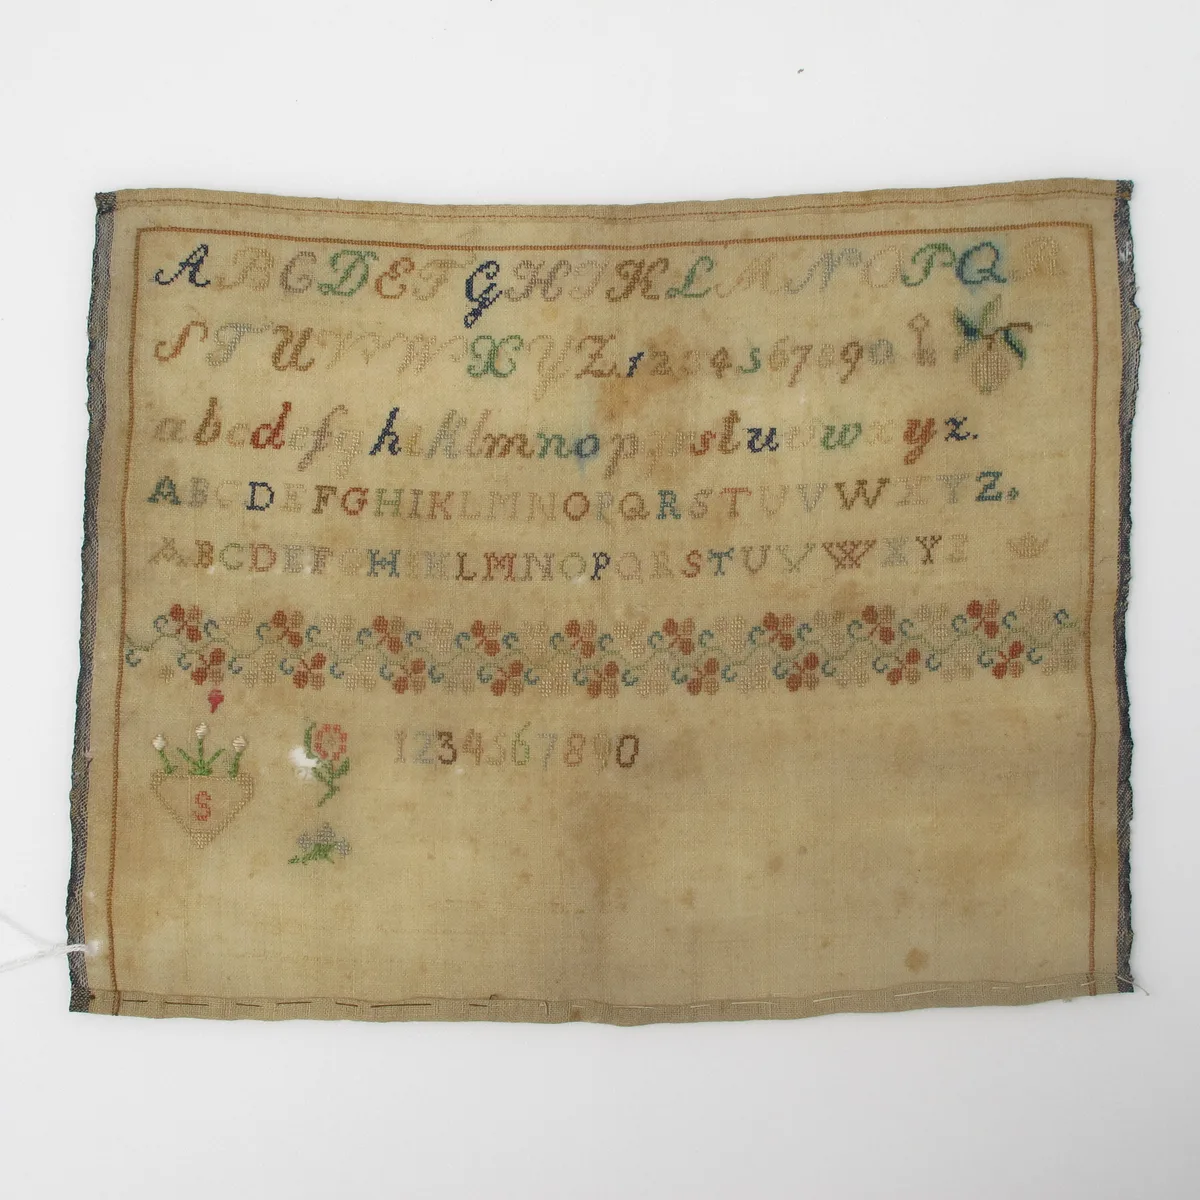 A B C D E F G H I K L M N O P Q R
S T U V W X Y Z. 1 2 3 4 5 6 7 8 9 0
a b c d e f g h i k l m n o p q r s t u v w x y z.
A B C D E F G H I K L M N O P Q R S T U V W X Y Z.
A B C D E F G H I K L M N O P Q R S T U V W X Y Z
1 2 3 4 5 6 7 8 9 0
S